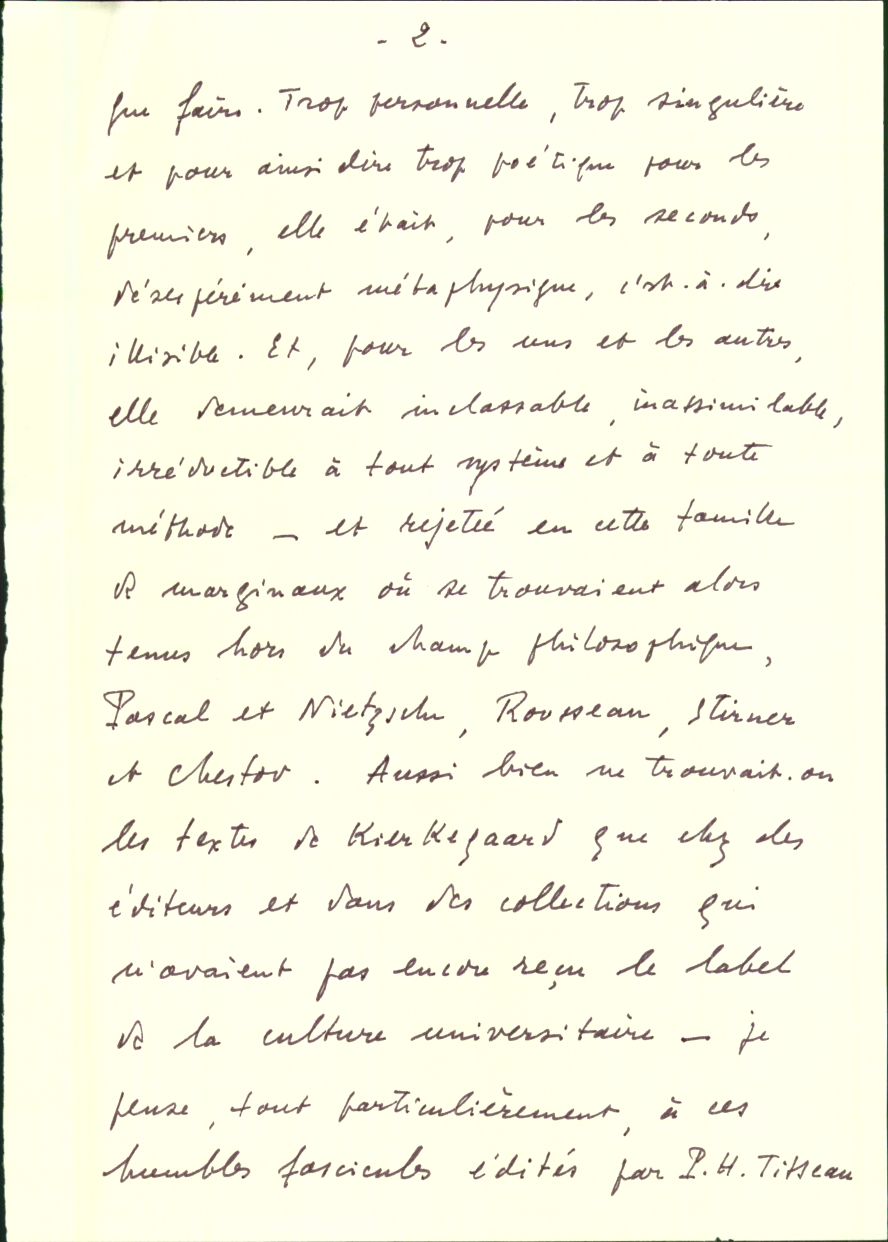 - 2 -
que faire. Trop personnelle, trop singulière
et pour ainsi dire trop poétique pour les
premiers, elle était, pour les seconds,
désespérément métaphysique, c'est-à-dire
illisible. Et, pour les uns et les autres,
elle demeurait inclassable, inassimilable,
irréductible à tout système et à toute
méthode — et rejetée en cette famille
de marginaux où se trouvaient alors
tenus hors du champ philosophique,
Pascal et Nietzsche, Rousseau, Stirner
et Chestov. Aussi bien ne trouvait-on
les textes de Kierkegaard que chez des
éditeurs et dans des collections qui
n'avaient pas encore reçu le label
de la culture universitaire — je
pense, tout particulièrement, à ces
humbles fascicules édités par P. H. Tisseau